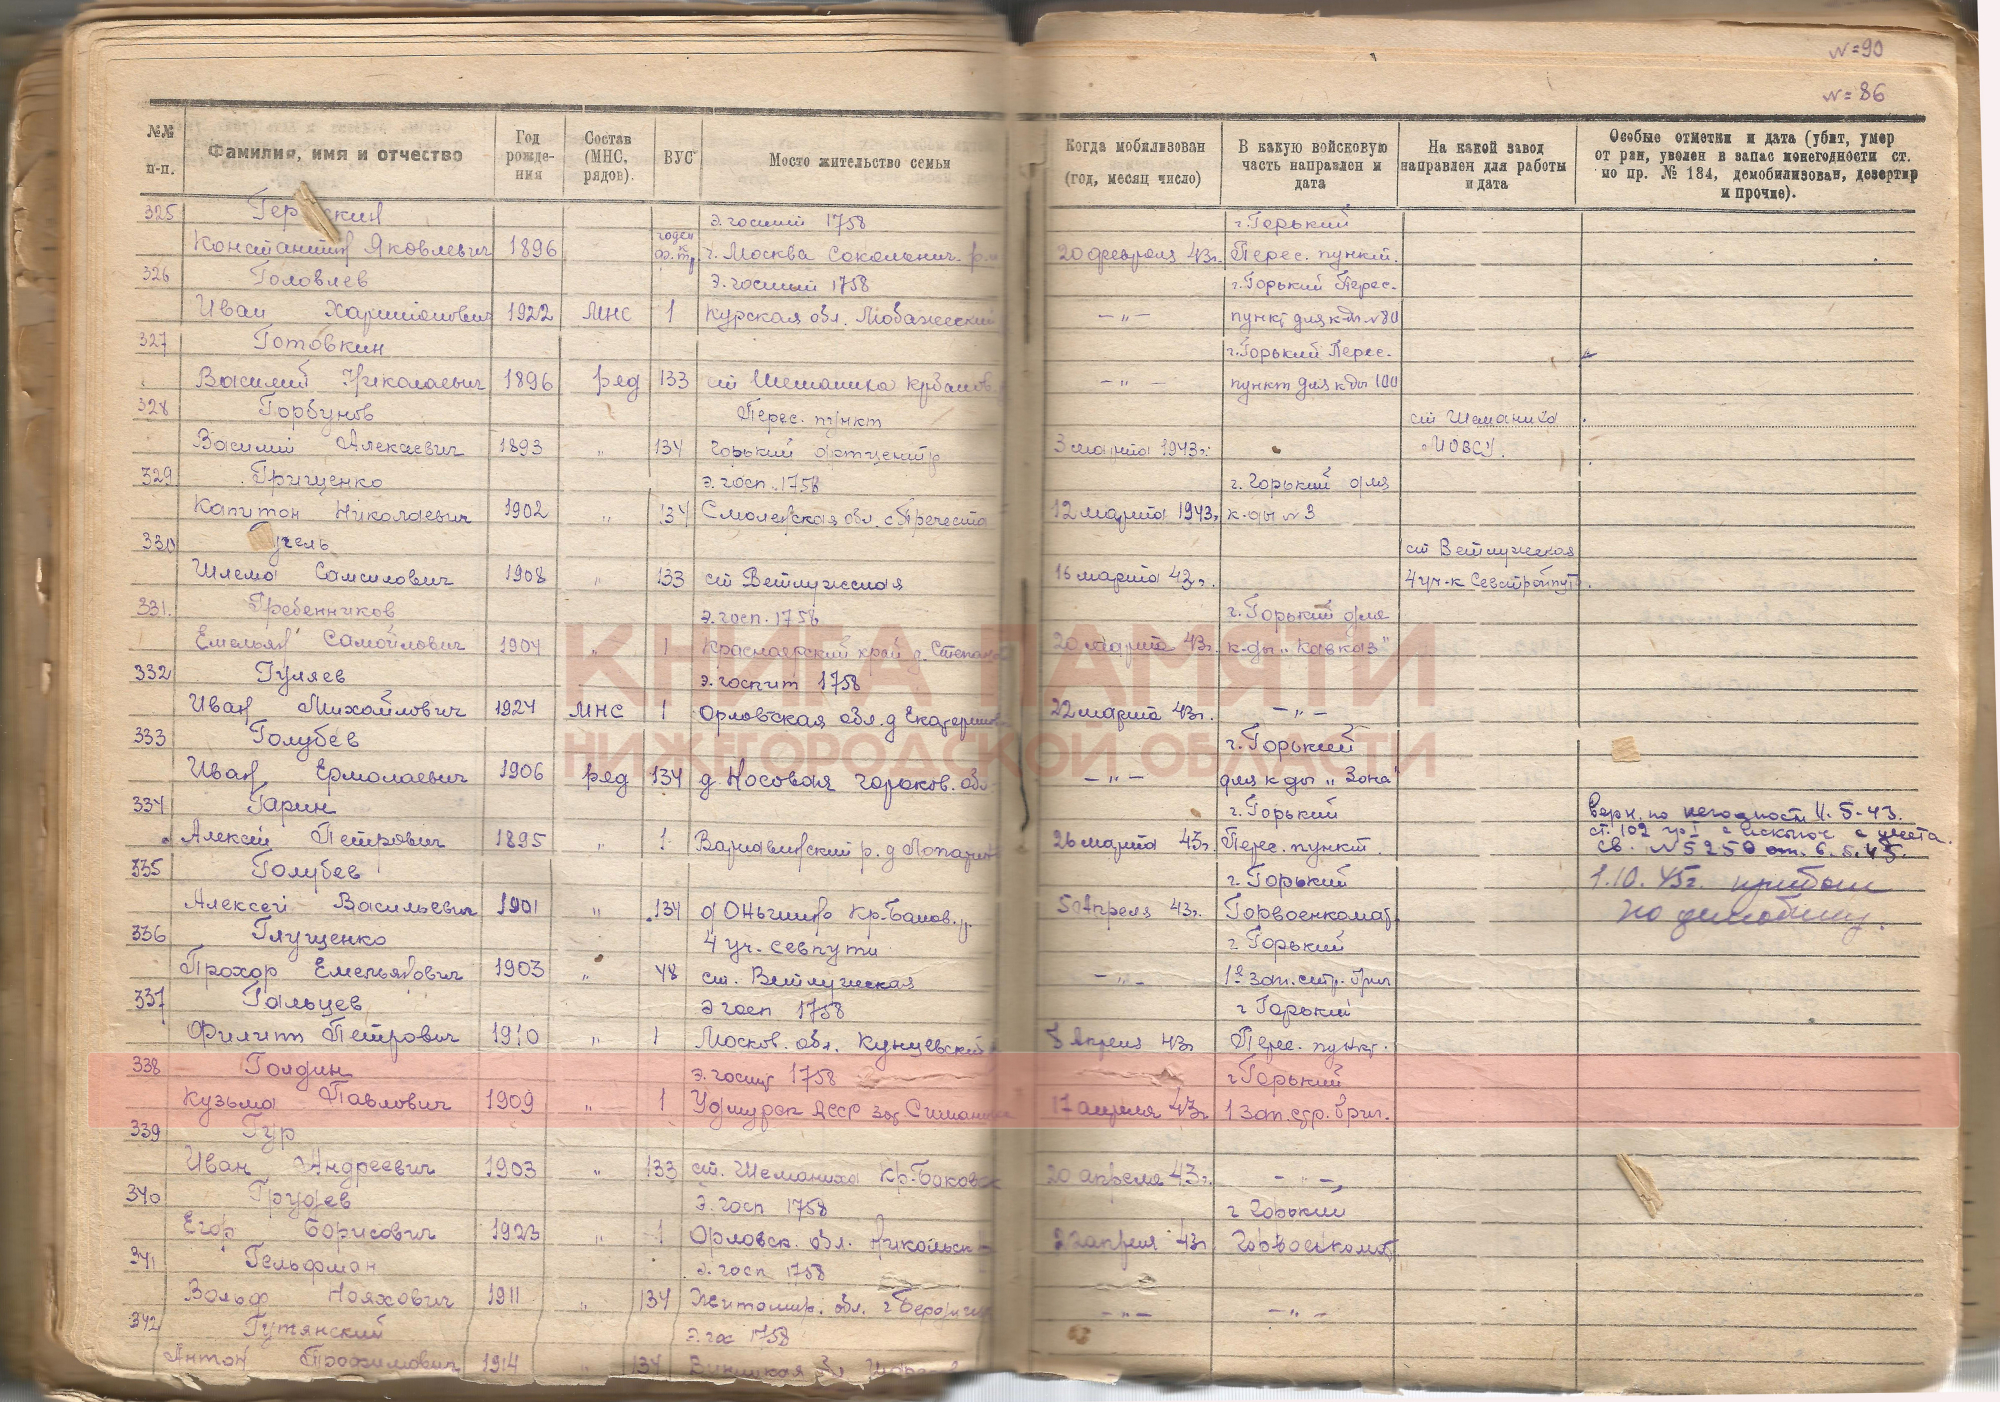 №=90
№=86
№№ п-п.
Фамилия, имя и отчество
Год рожде- ния
Состав (МНС, рядов).
ВУС
Место жительство семьи
Когда мобилизован (год, месяц число)
В какую войсковую часть направлен и дата
На какой завод направлен для работы и дата
Особые отметки и дата (убит, умер от ран, уволен в запас монегодности ст. по пр. № 184, демобилизован, дезертир и прочие).
325 э.госпит 1758 г.Горький
Константин Яковлевич 1896 годен к ф.тр г. Москва Сокольнич. 20 февраля 43г. Перес. пункт.
326 Головлев э.госпит 1758 г.Горький Перес.
Иван Харитонович 1922 МНС 1 Курская обл. -"- пункт для к-ды №80
327 Готовкин г.Горький Перес.
Василий Николаевич 1896 ряд 133 ст Шеманиха -"- пункт для к-ды 100
328 Горбунов Перес. пункт ст Шеманиха
Василий 1893 " 134 Горький 3 марта 1943г. ИОВСУ.
329 Грищенко э.госп. 1758 г. Горький для
Капитон Николаевич 1902 " 134 Смоленская обл. 12 марта 1943г к-ды №3
330 ст Ветлужская
Шлема Самсилович 1908 " 133 ст Ветлужская 16 марта 43г. 4 уч-к Севстройпут
331. Гребенников э.госп. 1758 г. Горький для
Емельян Самойлович 1904 " 1 Красноярский край 20 марта 43г. к-ды "Кавказ"
КНИГА ПАМЯТИ
332 Гуляев э.госпит 1758
Иван Михайлович 1924 МНС 1 Орловская обл. д 22 марта 43г. -"-
333 Голубев г.Горький
НИЖЕГОРОДСКОЙ ОБЛАСТИ
Иван Ермолаевич 1906 ряд 134 д Носовая горьков. обл -"- для к-ды "Зона"
334 Гарин г.Горький верн. по негодност 11.5-43.
Алексей Петрович 1895 " 1 Варнавинский р. д 26 марта 43г. Перес. пункт. ст. 102
св. №5250 от. 6.5.43.
335 Голубев г.Горький 1.10.45г. прибыл
Алексей Васильевич 1901 " 134 5 Апреля 43г. Горвоенкомат по
336 Глущенко 4 уч. севпути г Горький
Прохор Емельянович 1903 " 48 ст. Ветлужская -"- 1й зап. стр. бриг
337 Гальцев э госп 1758 г Горький
Филипп Петрович 1910 " 1 Москов. обл. Кунцевский 8 Апреля 43г Перес. пункт.
338 Голдин э.госпит 1758 г Горький
Кузьма Павлович 1909 " 1 Удмурск АССР 17 апреля 43г. 1 зап. стр. бриг.
339 Гур
Иван Андреевич 1903 " 133 ст. Шеманиха Кр-Баковск 20 апреля 43г. -"-
340 Грудев э. госп 1758 г Горький
Егор Борисович 1923 " 1 Орловск. обл. Никольск 22 апреля 43г Горвоенкомат
341 Гельфман э. госп 1758
Вольф Нояхович 1911 " 134 Житомир. обл. г -"- -"-
342 Гутянский э.гос 1758
Антон Трофимович 1914 " 134